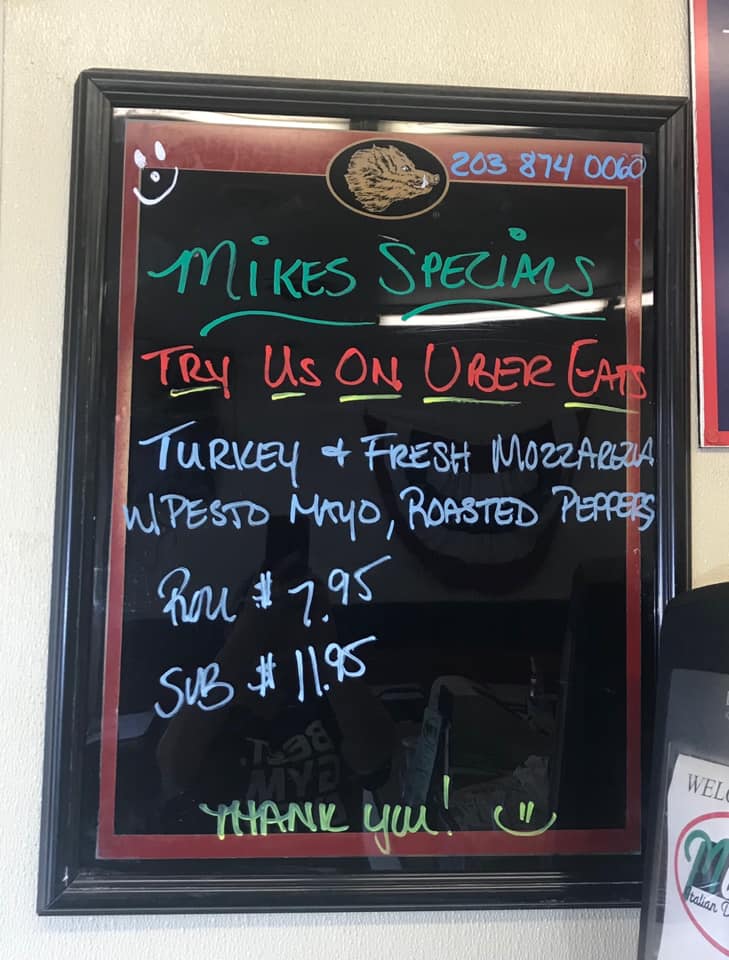 203 874 0060
MIKES SPECIALS
TRY US ON UBER EATS
TURKEY + FRESH MOZZARELLA
W/PESTO MAYO, ROASTED PEPPERS
ROLL $ 7.95
SUB $ 11.95
THANK YOU!
BEST
GYM
WELC
Italian D